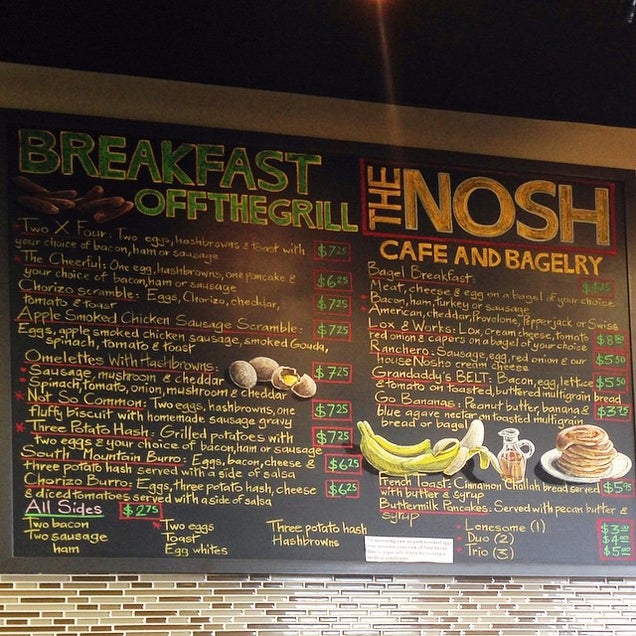 BREAKFAST
OFF THE GRILL
Two X Four: Two eggs, hashbrowns & toast with $7.25
your choice of bacon, ham or sausage
The Cheerful: One egg, hashbrowns, one pancake & $6.25
your choice of bacon, ham or sausage
Chorizo scramble: Eggs, Chorizo, cheddar, $7.25
tomato & toast
Apple Smoked Chicken Sausage Scramble: $7.25
Eggs, apple smoked chicken sausage, smoked Gouda,
spinach, tomato & toast
Omelettes With Hashbrowns: $7.25
* Sausage, mushroom & cheddar
* Spinach, tomato, onion, mushroom & cheddar
* Not So Common: Two eggs, hashbrowns, one $7.25
fluffy biscuit with homemade sausage gravy
* Three Potato Hash: Grilled potatoes with $7.25
two eggs & your choice of bacon, ham or sausage
South Mountain Burro: Eggs, bacon, cheese & $6.25
three potato hash served with a side of salsa
Chorizo Burro: Eggs, three potato hash, cheese $6.25
& diced tomatoes served with a side of salsa
All Sides $2.75
Two bacon * Two eggs Three potato hash
Two sausage Toast Hashbrowns
ham Egg whites
THE NOSH
CAFE AND BAGELRY
Bagel Breakfast:
Meat, cheese & egg on a bagel of your choice
* Bacon, ham, turkey or sausage
* American, cheddar, Provolone, Pepperjack or Swiss
Lox & Works: Lox, cream cheese, tomato
red onion & capers on a bagel of your choice
Ranchero: Sausage, egg, red onion & our $5.50
house Nosho cream cheese
Grandaddy's BELT: Bacon, egg, lettuce $5.50
& tomato on toasted, buttered multigrain bread
Go Bananas: Peanut butter, banana & $3.75
blue agave nectar on toasted multigrain
bread or bagel
French Toast: Cinnamon Challah bread served
with butter & syrup
Buttermilk Pancakes: Served with pecan butter &
syrup
* Lonesome (1)
* Duo (2)
* Trio (3)